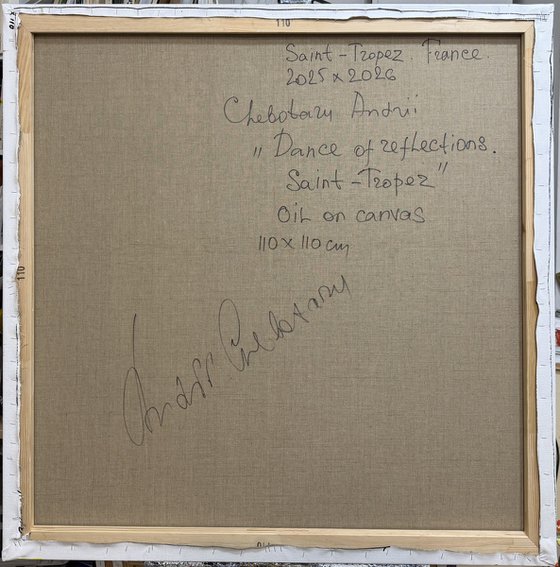 110
Saint-Tropez. France.
2025 x 2026
Chebotaru Andrii
„ Dance of reflections.
Saint-Tropez"
Oil on canvas
110 x 110 cm
110
Andrii Chebotaru